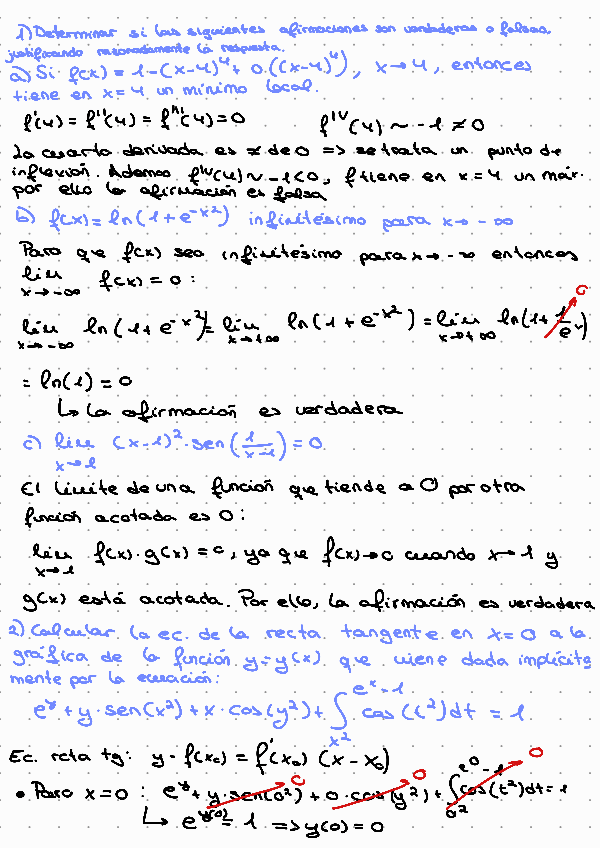 1) Determinar si las siguientes afirmaciones son verdaderas o falsas,
justificando razonadamente la respuesta.
a) Si f(x) = 1-(x-4)⁴ + o((x-4)⁴), x→4, entonces
tiene en x=4 un mínimo local.
f'(4) = f''(4) = f'''(4) = 0 f^IV(4) ~ -1 ≠ 0
La cuarta derivada es ≠ de 0 => se trata un punto de
inflexión. Además f^IV(4) ~ -1<0, f tiene en x=4 un máx.
por ello la afirmación es falsa
b) f(x) = ln(1+e^-x²) infinitésimo para x→-∞
Para que f(x) sea infinitésimo para x→-∞ entonces
lim f(x) = 0 :
x→-∞
lim ln(1+e^-x²) = lim ln(1+e^-x²) = lim ln(1+ 1/e^x) 0
x→-∞ x→+∞ x→+∞
= ln(1) = 0
↳ La afirmación es verdadera
c) lim (x-1)²·sen(1/(x-1)) = 0
x→1
El límite de una función que tiende a 0 por otra
función acotada es 0:
lim f(x)·g(x) = 0, ya que f(x)→0 cuando x→1 y
x→1
g(x) está acotada. Por ello, la afirmación es verdadera
2) Calcular la ec. de la recta tangente en x=0 a la
gráfica de la función y=y(x) que viene dada implícita
mente por la ecuación:
e^y + y·sen(x²) + x·cos(y²) + ∫_{x²}^{e^x-1} cos(t²)dt = 1
Ec. reta tg: y-f(x₀) = f'(x₀) (x-x₀)
• Para x=0 : e^y + y·sen(0²) 0 + 0·cos(y²) 0 + ∫_{0²}^{e⁰-1} cos(t²)dt = 1 0
↳ e^y(0) = 1 => y(0) = 0